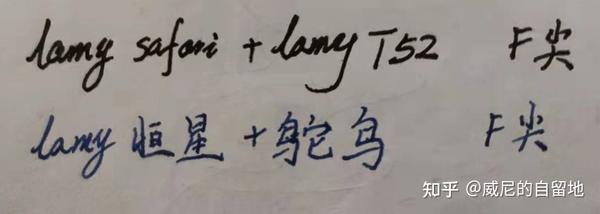 lamy safari + lamy T52 F尖
lamy 恒星 + 鸵鸟 F尖
知乎 @威尼的自留地